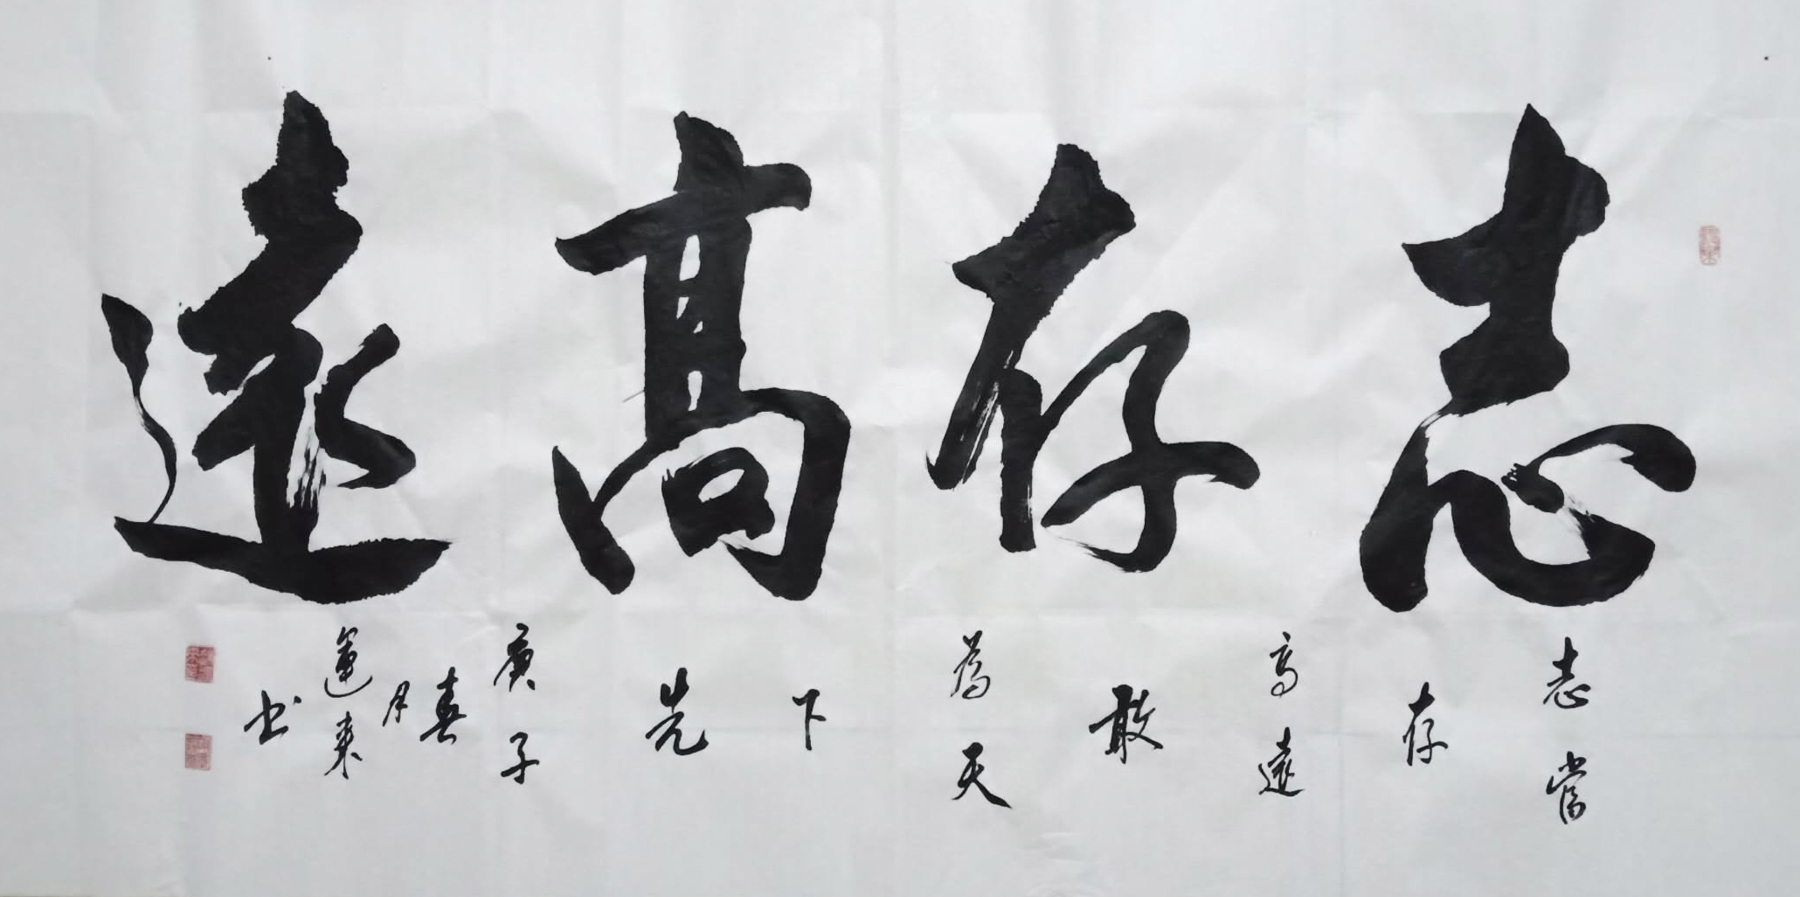 志存高遠
志當存高遠敢為天下先
庚子春月運來书